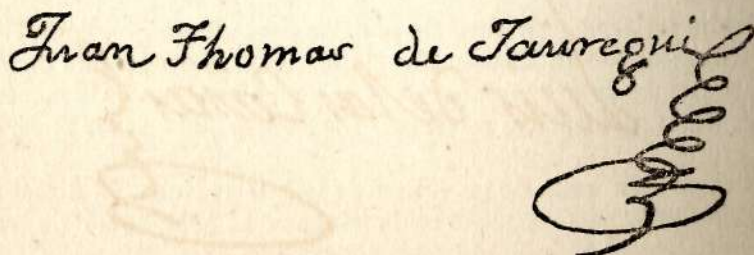 Juan Thomas de Jauregui